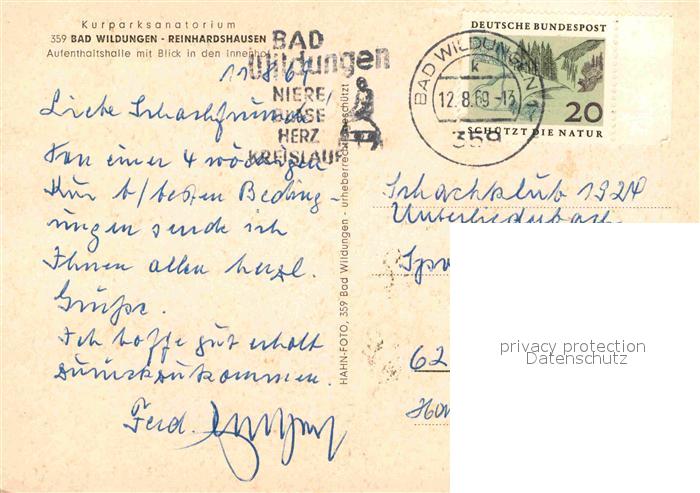 Kurparksanatorium
359 BAD WILDUNGEN - REINHARDSHAUSEN
Aufenthaltshalle mit Blick in den Innenhof
11.8.69
Liebe Schachfreunde!
Von einer 4 wöchigen
Kur b/besten Beding-
ungen sende ich
Ihnen allen herzl.
Grüße.
Ich hoffe gut erholt
zurückzukommen.
Ferd.
BAD
Wildungen
NIERE
BLASE
HERZ
KREISLAUF
HAHN-FOTO, 359 Bad Wildungen - urheberrechtl. geschützt
BAD WILDUNGEN
k
12.8.69-13
359
DEUTSCHE BUNDESPOST
20
SCHÜTZT DIE NATUR
Schachklub 1924
Unterliederbach
62
privacy protection
Datenschutz